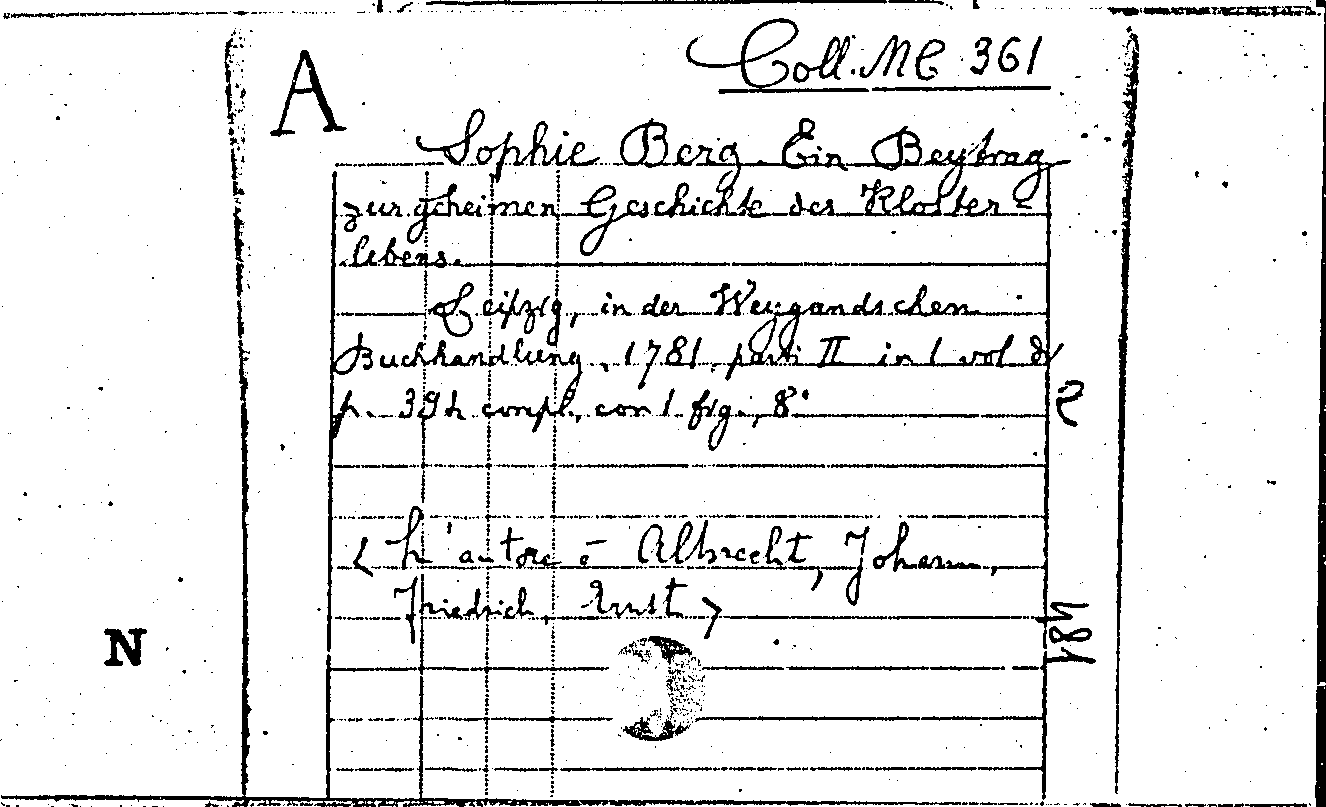 A
Coll. MC 361
Sophie Berg. Ein Beytrag
zur geheimen Geschichte des Kloster-
lebens.
Leipzig, in der Weygandschen
Buchhandlung, 1781, parti II in 1 vol di
p. 394 compl., con 1 fig., 8°
< L'autore è Albrecht, Johann,
Friedrich, Ernst >
N